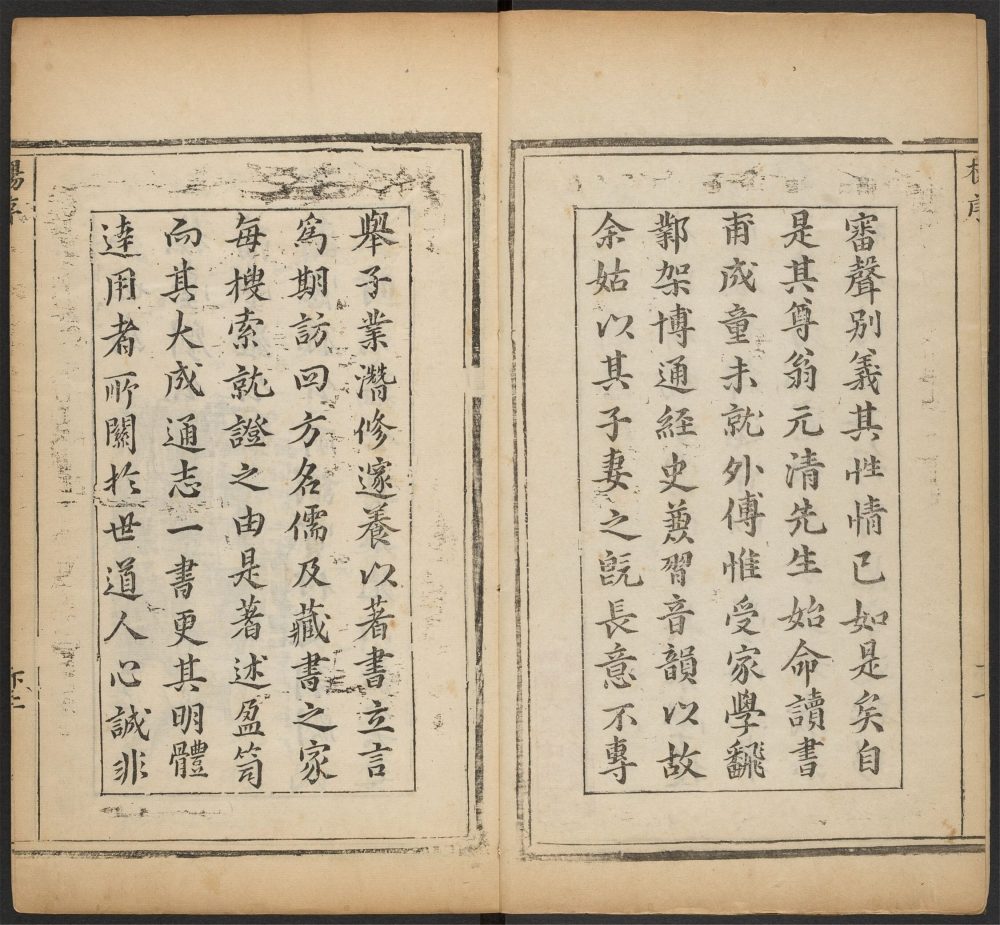 審聲別義其性情已如是矣自
是其尊翁元清先生始命讀書
甫成童未就外傅惟受家學飜
鄴架博通經史兼習音韻以故
余姑以其子妻之旣長意不專
舉子業潛修邃養以著書立言
爲期訪四方名儒及藏書之家
每搜索就證之由是著述盈笥
而其大成通志一書更其明體
達用者所關於世道人心誠非